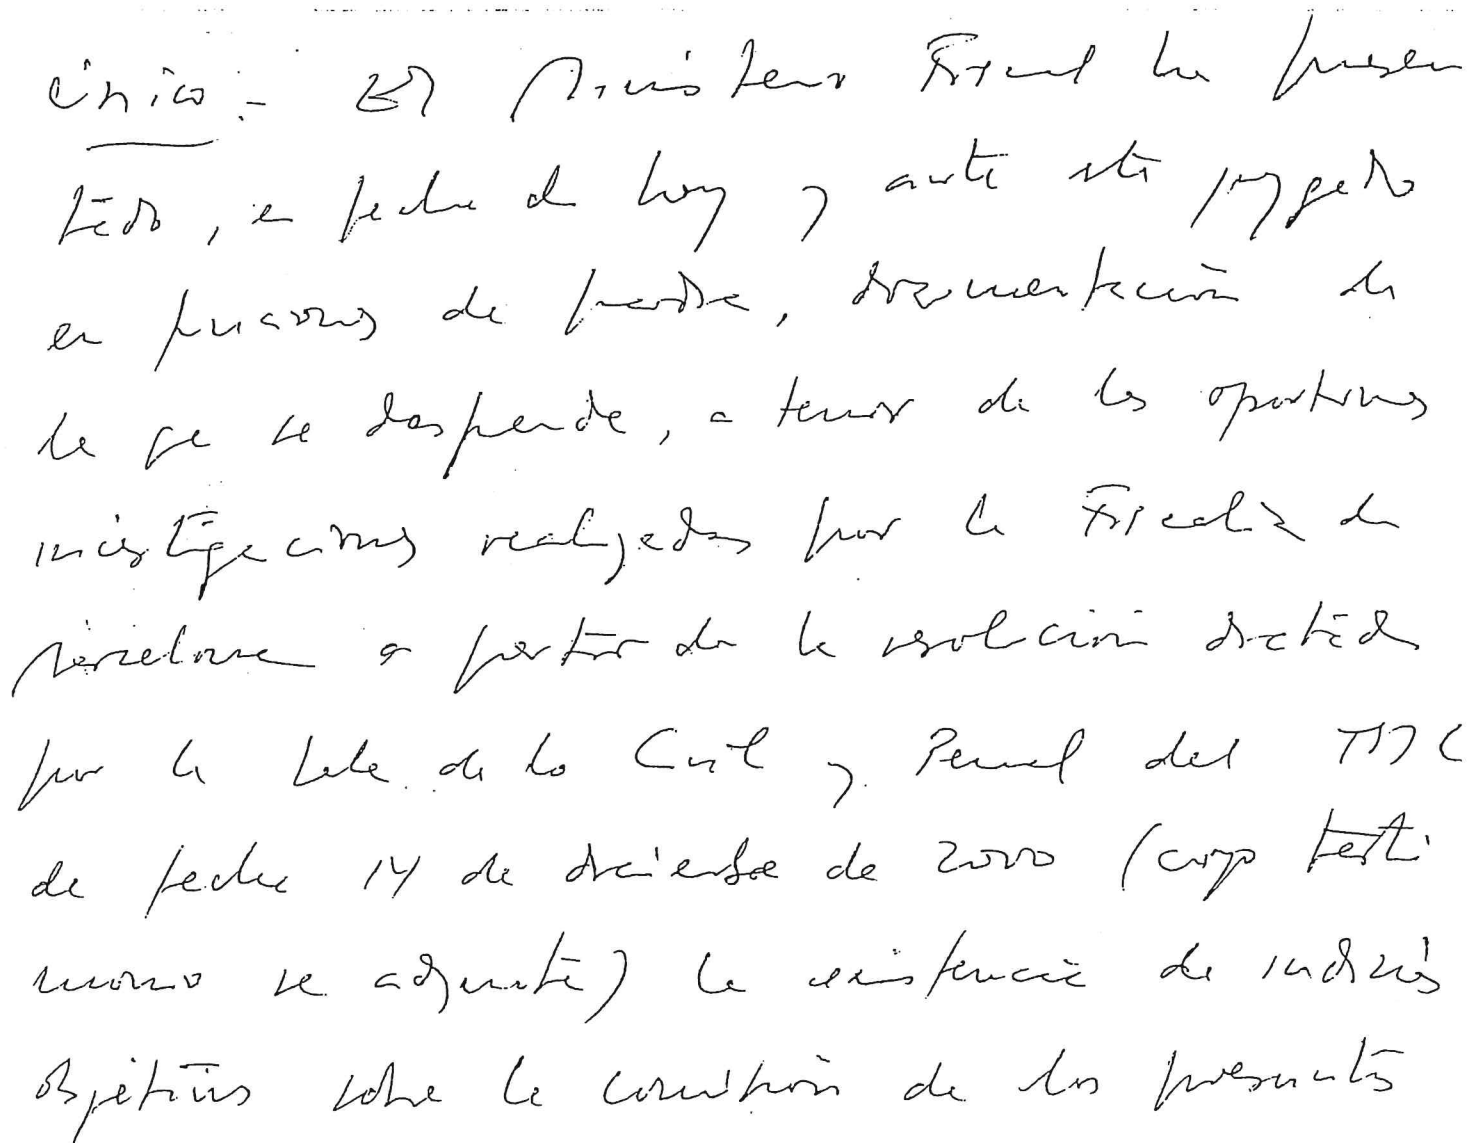 único.- El Ministerio Fiscal ha presen
tado, en fecha de hoy y ante este juzgado
en funciones de guardia, documentación de
la que se desprende, a tenor de las oportunas
investigaciones realizadas por la Fiscalía de
Barcelona a partir de la resolución dictada
por la Sala de lo Civil y Penal del TSJC
de fecha 14 de diciembre de 2000 (cuyo testi
monio se adjunta) la existencia de indicios
objetivos sobre la comisión de los presuntos